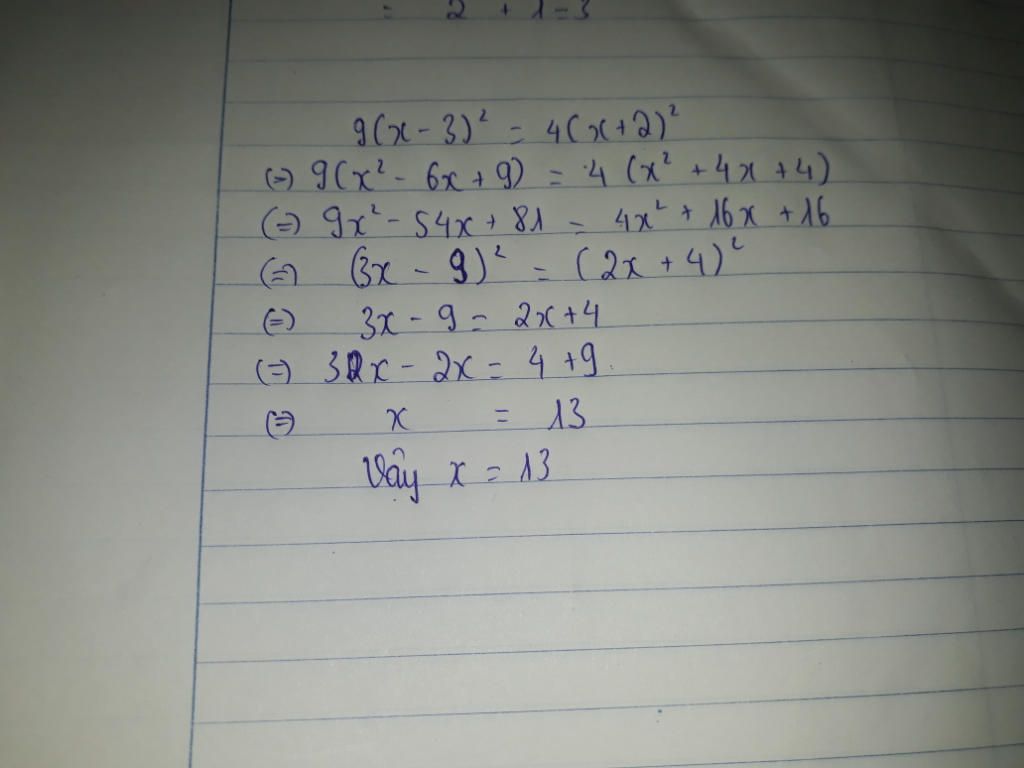 = 2 + 1 = 3
9(x - 3)² = 4(x+2)²
(=) 9(x² - 6x + 9) = 4 (x² + 4x + 4)
(=) 9x² - 54x + 81 = 4x² + 16x + 16
(=) (3x - 9)² = (2x + 4)²
(=) 3x - 9 = 2x+4
(=) 3x - 2x = 4 + 9
(=) x = 13
Vậy x = 13